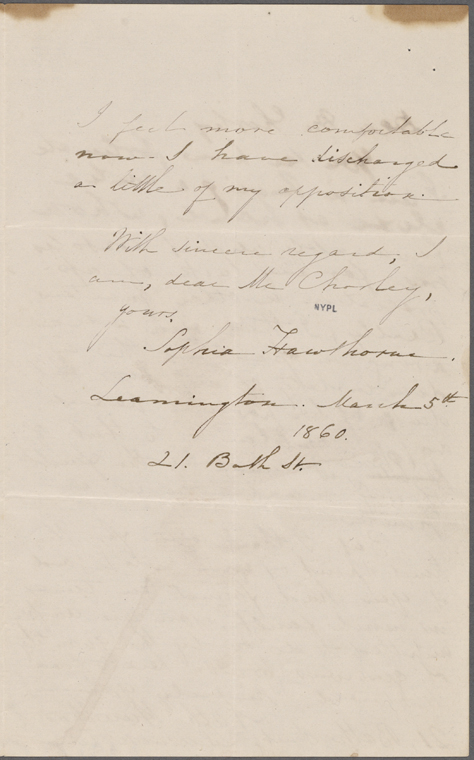 I feel more comfortable
now I have discharged
a little of my opposition.
With sincere regard, I
am, dear Mr Chorley,
yours,
NYPL
Sophia Hawthorne.
Leamington. March 5th
1860.
21. Bath St.